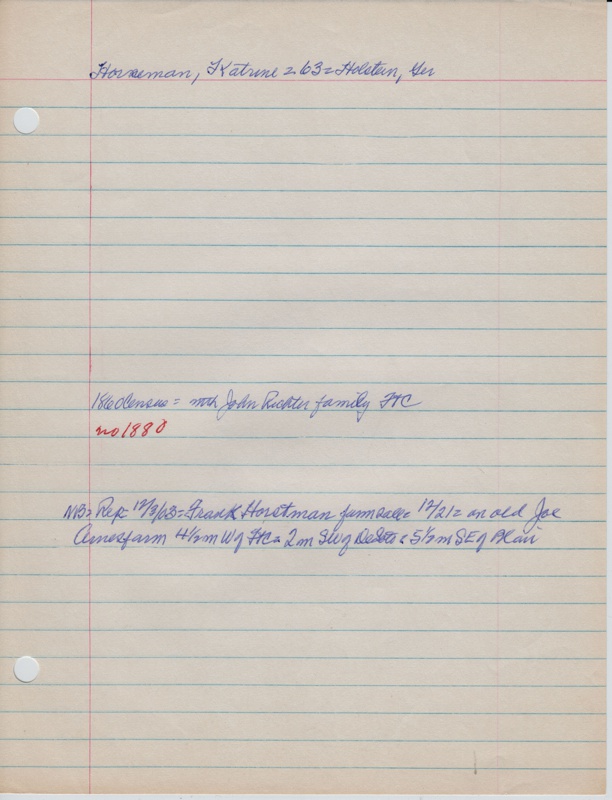 Horneman, Katrine = 63 = Holstein, Ger
1860 Census = with John Richter family FtC
no 1880
NB = Rep = 12/3/03 = Frank Horstman farm sale = 12/21 = on old Joe
farm 4 1/2 m W of FtC = 2 m SW of DeSoto = 5 1/2 m SE of Blair